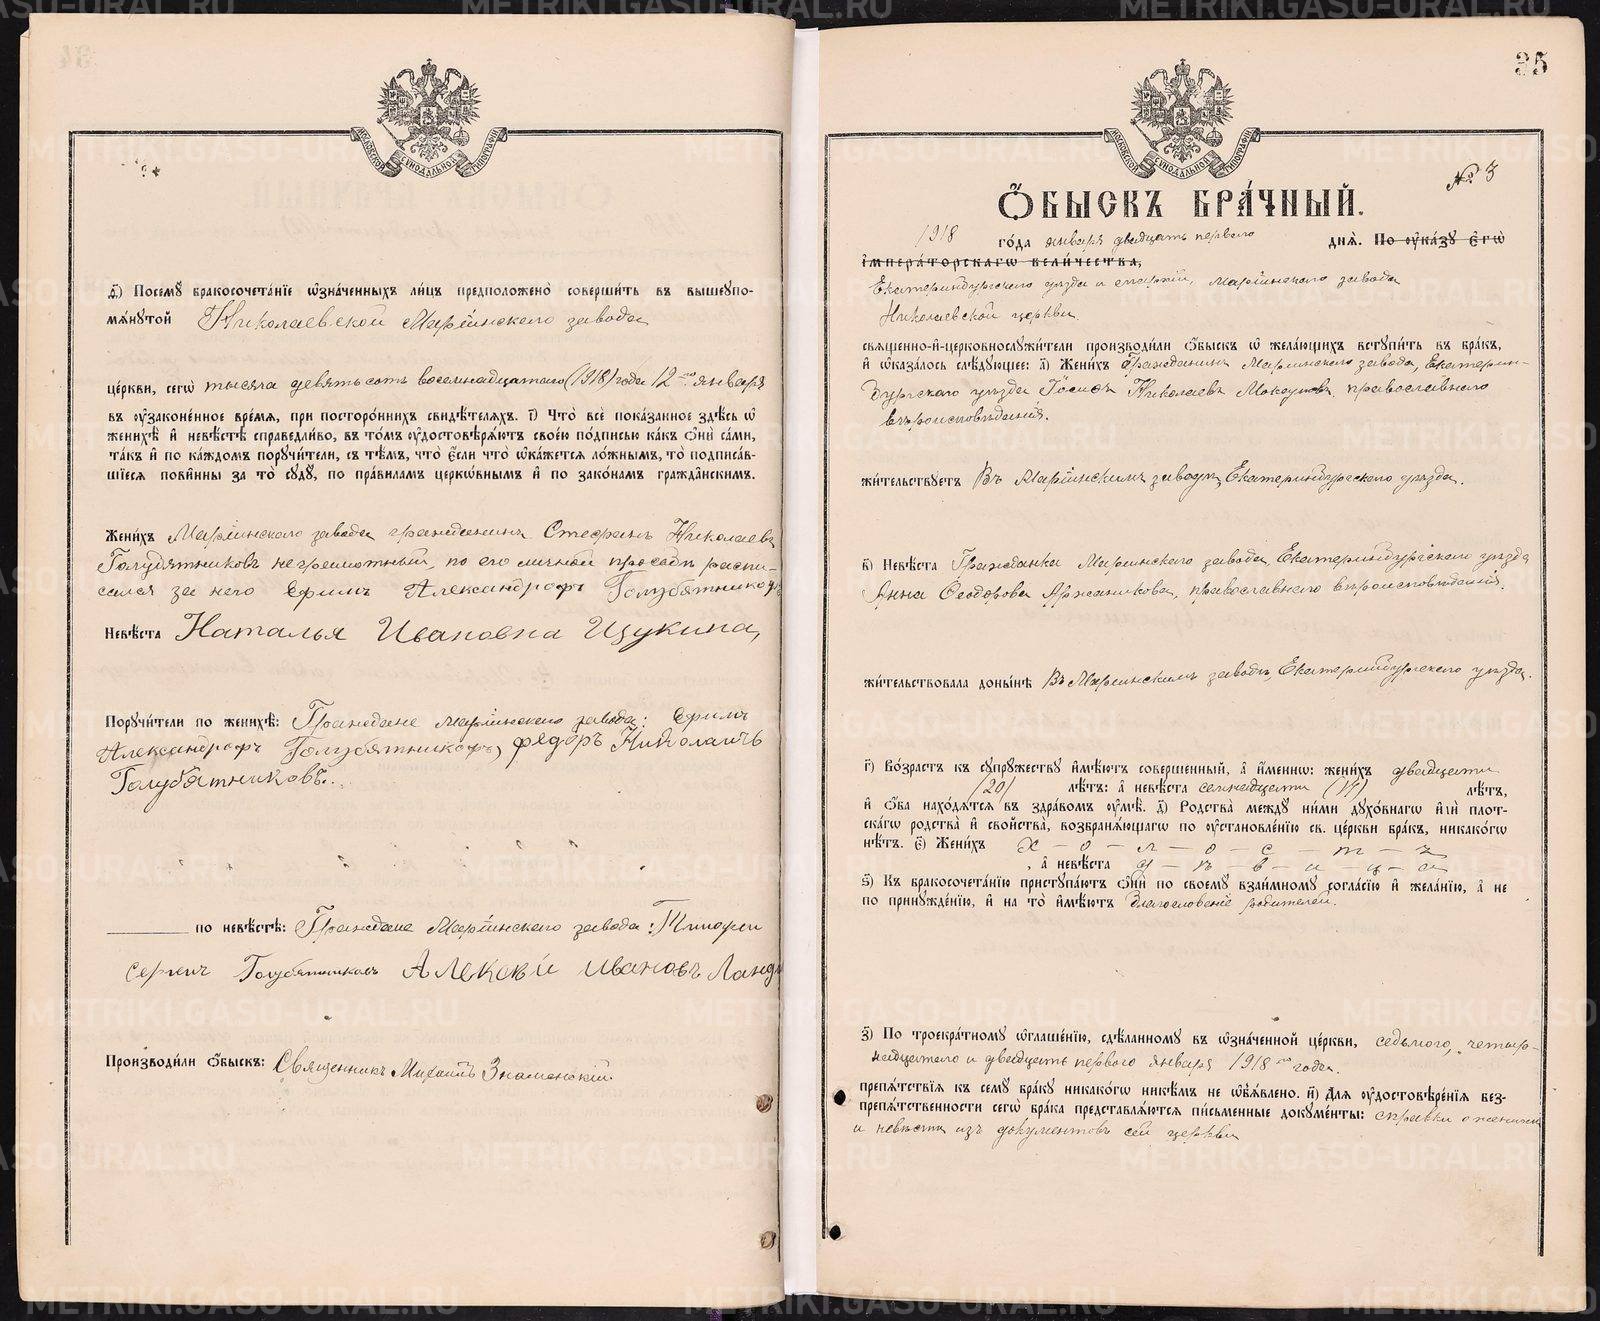 МОСКОВСКОЙ СѴНОДАЛЬНОЙ ТИПОГРАФІИ
д҃) Посемꙋ̀ бракосочета́нїе ѡ҆зна́ченныхъ ли́цъ предположено̀ соверши́ть въ вышеꙋпо-
мѧ́нꙋтой Николаевской Маріинского завода
це́ркви, сегѡ̀ тысяча девятьсотъ восемнадцатаго (1918) года 12 го января
въ ᲂу҆зако́ненное вре́мѧ, при посторо́ннихъ свидѣ́телѧхъ. і҃) Что̀ всѐ пока́занное здѣ́сь ѡ҆
женихѣ̀ и҆ невѣ́стѣ справедли́во, въ то́мъ ᲂу҆достовѣрѧ́ютъ свое́ю по́дписью ка́къ ѻ҆нѝ са́ми,
та́къ и҆ по ка́ждомъ порꙋчи́тели, съ тѣ́мъ, что̀ є҆́сли что̀ ѡ҆ка́жетсѧ ло́жнымъ, то̀ подписа́в-
шїесѧ пови́нны за то̀ сꙋдꙋ̀, по пра́виламъ церко́внымъ и҆ по зако́намъ гражда́нскимъ.
Жени́хъ Маріинского завода гражданинъ Стефанъ Николаевъ
Голубятниковъ неграмотный, по его личной просьбѣ распи-
сался за него Ефимъ Александрофъ Голубятникофъ
Невѣ́ста Наталья Ивановна Щукина,
Порꙋчи́тели по женихѣ̀: Граждане Маріинского завода: Ефимъ
Александрофъ Голубятникофъ, федоръ Николаичъ
Голубятниковъ.
по невѣ́стѣ: Граждане Маріинского завода: Тимофеи
сергеич Голубятниковъ Алексѣй ивановъ
Производи́ли ѻ҆́быскъ: Священникъ Михаилъ Знаменскій.
35
МОСКОВСКОЙ СѴНОДАЛЬНОЙ ТИПОГРАФІИ
№ 3
Ѻ҆БЫСКЪ БРА́ЧНЫЙ.
1918 го́да января двадцать перваго днѧ̀. По ᲂу҆ка́зꙋ Є҆гѡ̀
і҆мпера́торскагѡ вели́чества,
Екатеринбургского уѣзда и епархіи, Маріинского завода
Николаевской церкви
свѧще́нно-и҆-церковнослꙋжи́тели производи́ли ѻ҆́быскъ ѡ҆ жела́ющихъ встꙋпи́ть въ бра́къ,
и҆ ѡ҆каза́лось слѣ́дꙋющее: а҃) Жени́хъ Гражданинъ Маріинского завода, Екатерин-
бургского уѣзда Іосифъ Николаевъ православнаго
вѣроисповѣданія.
жи́тельствꙋетъ Въ Маріинскимъ заводѣ, Екатеринбургского уѣзда.
в҃) Невѣ́ста Гражданка Маріинского завода, Екатеринбургского уѣзда
Анна Феодорова Аржанникова, православнаго вѣроисповѣданія.
жи́тельствовала доны́нѣ Въ Маріинскимъ заводѣ, Екатеринбургского уѣзда.
г҃) Во́зрастъ къ сꙋпрꙋ́жествꙋ и҆мѣ́ютъ соверше́нный, а҆ и҆́меннѡ: жени́хъ двадцати
(20) лѣ́тъ: а҆ невѣ́ста семнадцати (17) лѣ́тъ,
и҆ ѻ҆́ба нахо́дѧтсѧ въ здра́вомъ ᲂу҆мѣ̀. д҃) Родства̀ междꙋ ни́ми дꙋхо́внагѡ и҆лѝ плот-
ска́гѡ родства̀ и҆ сво́йства, возбранѧ́ющагѡ по ᲂу҆становле́нїю св. це́ркви бра́къ, никако́гѡ
нѣ́тъ. є҃) Жени́хъ х — о — л — о — с — т — ъ
, а҆ невѣ́ста д — ѣ — в — и — ц — а
ѕ҃) Къ бракосочета́нїю пристꙋпа́ютъ ѻ҆нѝ по своемꙋ̀ взаи́мномꙋ согла́сїю и҆ жела́нїю, а҆ не
по принꙋжде́нїю, и҆ на то̀ и҆мѣ́ютъ благословеніе родителей.
з҃) По троекра́тномꙋ ѡ҆глаше́нїю, сдѣ́ланномꙋ въ ѡ҆зна́ченной це́ркви, седьмого, четыр-
надцатаго и двадцать перваго января 1918 го года.
препѧ́тствїѧ къ семꙋ̀ бра́кꙋ никако́гѡ никѣ́мъ не ѡ҆б̾ѧ́влено. и҃) Длѧ ᲂу҆достовѣре́нїѧ без-
препѧ́тственности сегѡ̀ бра́ка представлѧ́ютсѧ пи́сьменные докꙋме́нты: справки о женихѣ
и невѣстѣ изъ документовъ сей церкви